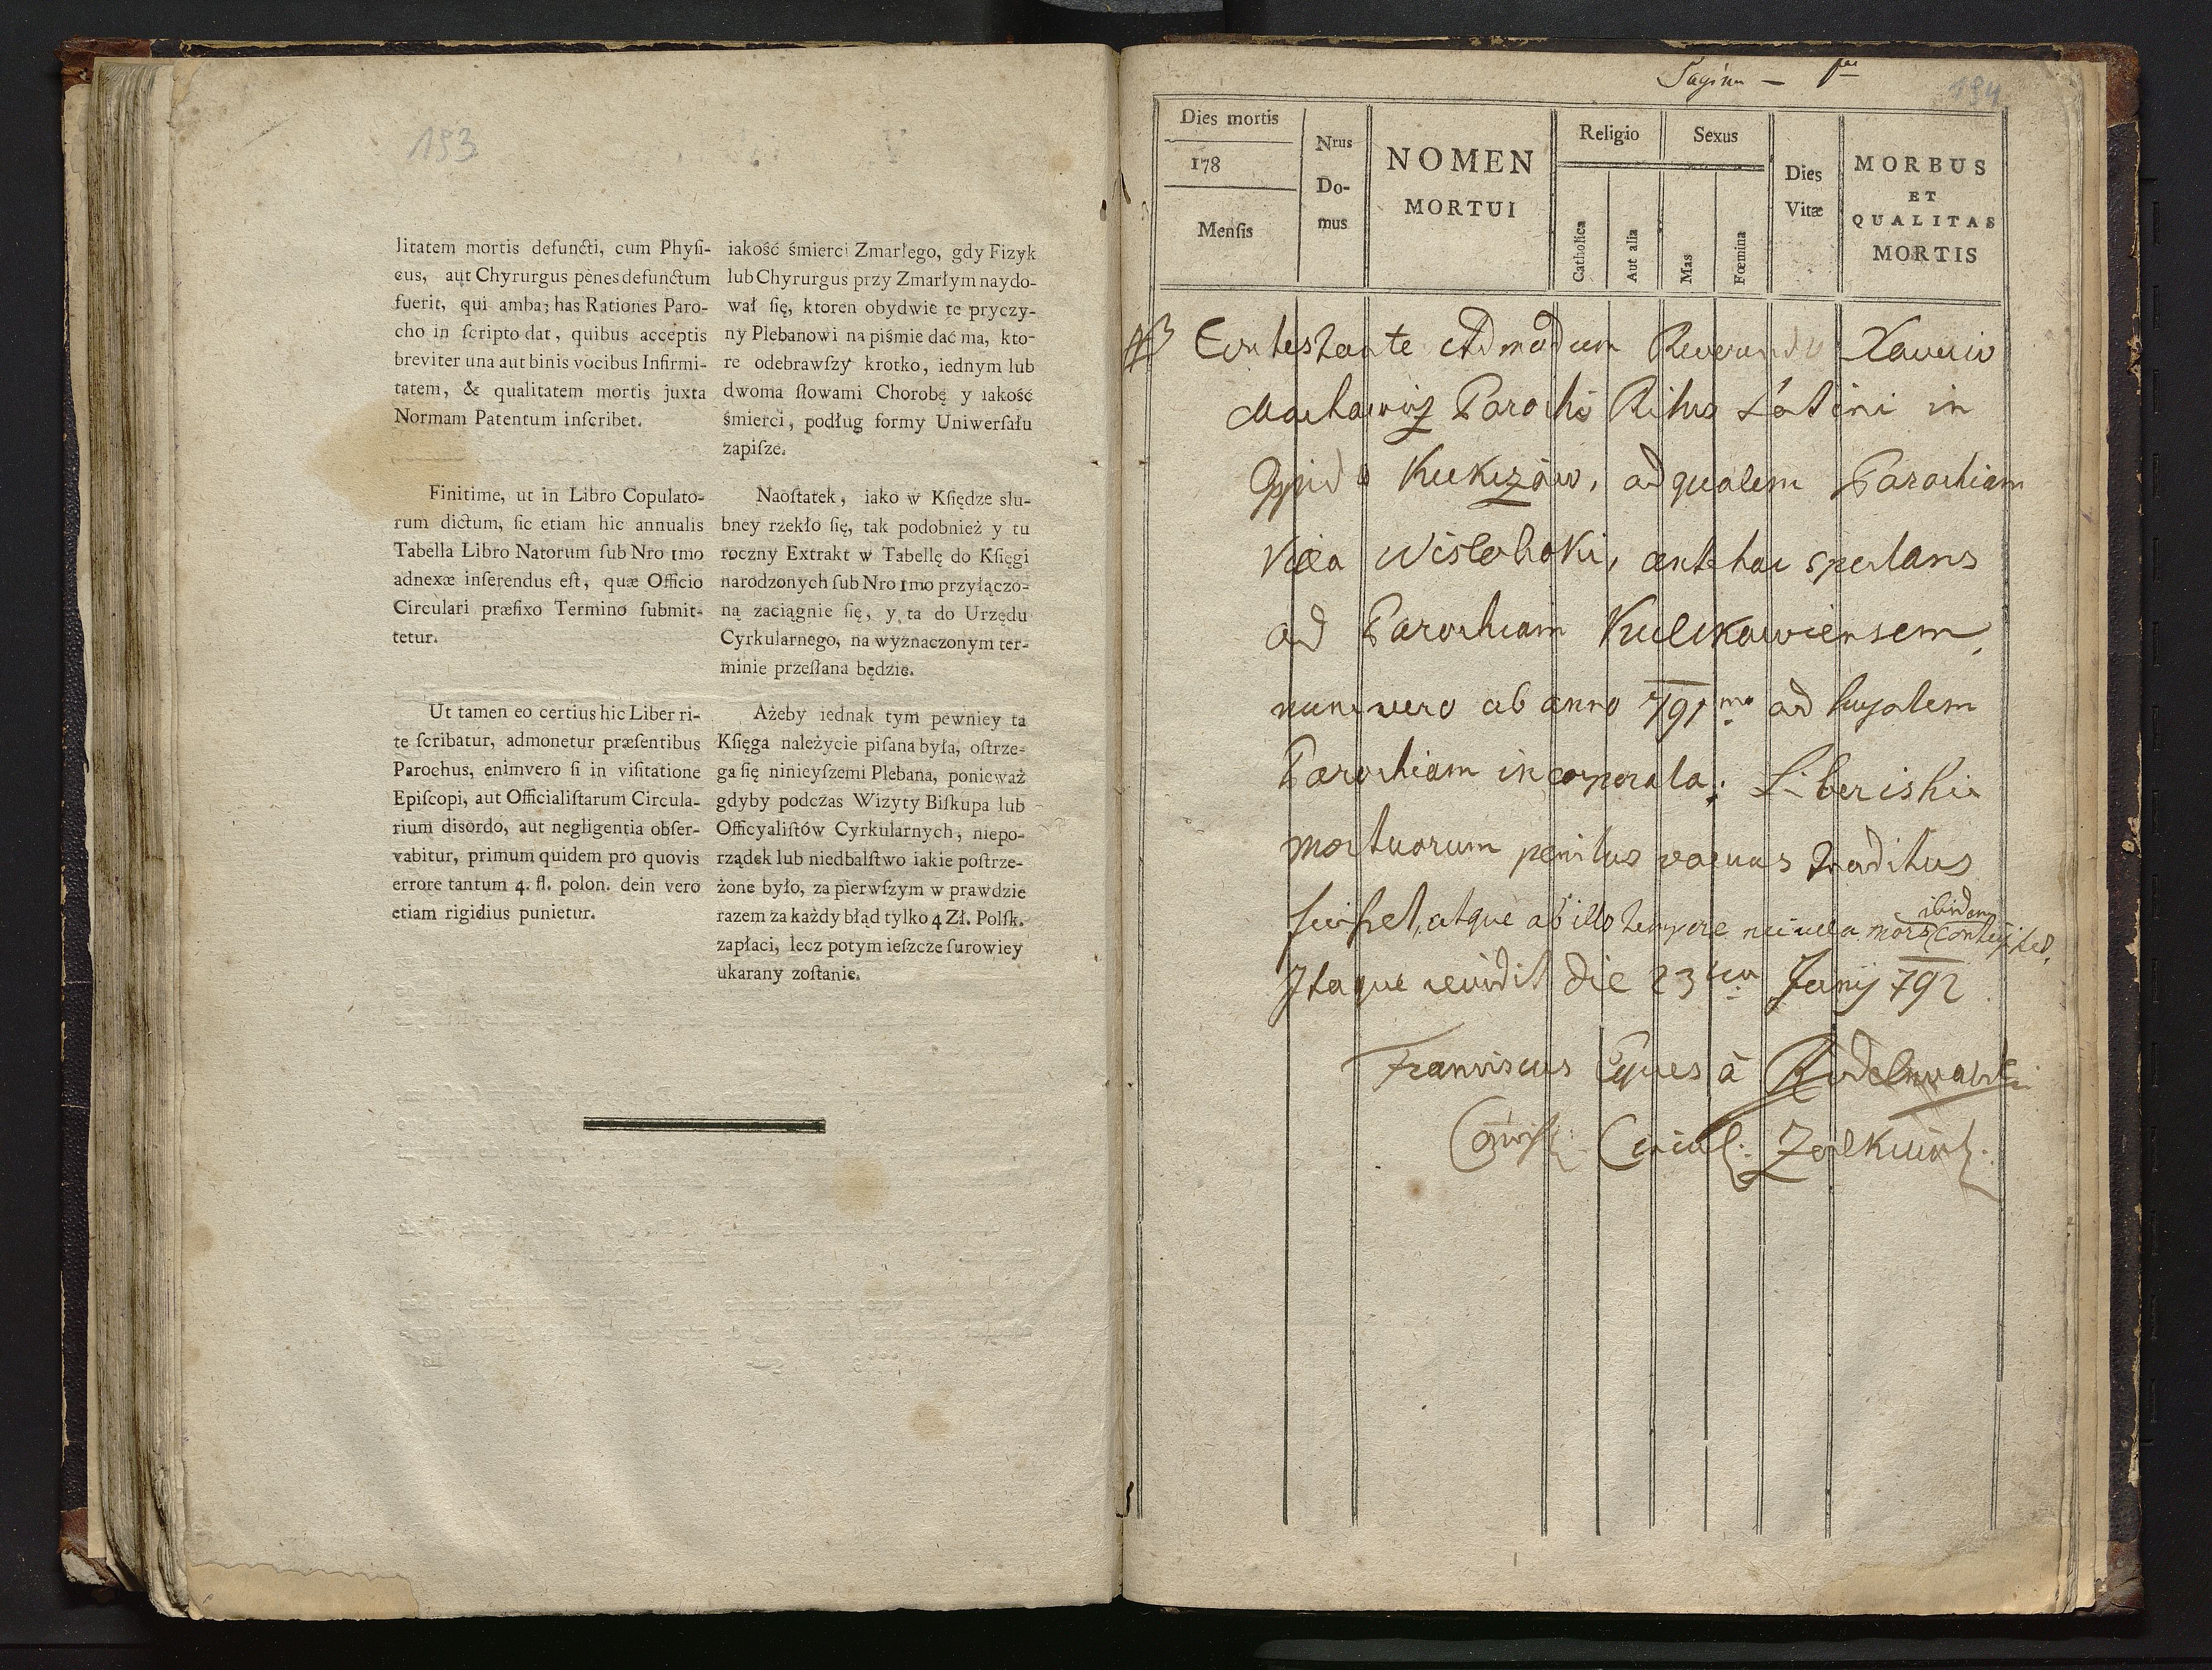 193
litatem mortis defuncti, cum Phyſi-
cus, aut Chyrurgus penes defunctum
fuerit, qui amba; has Rationes Paro-
cho in ſcripto dat, quibus acceptis
breviter una aut binis vocibus Infirmi-
tatem, & qualitatem mortis juxta
Normam Patentum inſcribet.
Finitime, ut in Libro Copulato-
rum dictum, ſic etiam hic annualis
Tabella Libro Natorum ſub Nro 1mo
adnexæ inſerendus eſt, quæ Officio
Circulari præfixo Termino ſubmit-
tetur.
Ut tamen eo certius hic Liber ri-
te ſcribatur, admonetur præſentibus
Parochus, enimvero ſi in viſitatione
Epiſcopi, aut Officialiſtarum Circula-
rium disordo, aut negligentia obſer-
vabitur, primum quidem pro quovis
errore tantum 4. fl. polon. dein vero
etiam rigidius punietur.
iakość śmierci Zmarłego, gdy Fizyk
lub Chyrurgus przy Zmarłym naydo-
wał ſię, ktoren obydwie te pryczy-
ny Plebanowi na piśmie dać ma, kto-
re odebrawſzy krotko, iednym lub
dwoma ſłowami Chorobę y iakość
śmierci, podług formy Uniwerſału
zapiſze.
Naoſtatek, iako w Kſiędze slu-
bney rzekło ſię, tak podobnież y tu
roczny Extrakt w Tabellę do Kſięgi
narodzonych ſub Nro 1mo przyłączo-
ną zaciągnie ſię, y ta do Urzędu
Cyrkularnego, na wyznaczonym ter-
minie przeſłana będzie.
Ażeby iednak tym pewniey ta
Kſięga należycie piſana była, oſtrze-
ga ſię ninieyſzemi Plebana, ponieważ
gdyby podczas Wizyty Biſkupa lub
Officyaliſtów Cyrkularnych, niepo-
rządek lub niedbalſtwo iakie poſtrze-
żone było, za pierwſzym w prawdzie
razem za każdy błąd tylko 4 Zł. Polſk.
zapłaci, lecz potym ieſzcze ſurowiey
ukarany zoſtanie.
Pagina — 1ma
194
Dies mortis
178
Menſis
Nrus
Do-
mus
NOMEN
MORTUI
Religio
Catholica
Aut alia
Sexus
Mas
Fœmina
Dies
Vitæ
MORBUS
ET
QUALITAS
MORTIS
Contestante Admodum Reverendo Xaverio
Parocho Ritus Latini in
Oppido Kukizów, ad qualem Parochiam
Villa Wisłoboki, antehac spectans
ad Parochiam Kulikowiensem,
nunc vero ab anno 791mo ad hujalem
Parochiam incorporata; Liber iste
mortuorum penitus vacuus traditus
fuisset, atque ab illo tempore nulla mors ibidem contigisset,
Itaque revidit die 23tia Junij 792.
Franciscus Eques à
Circul: Zolkiew: